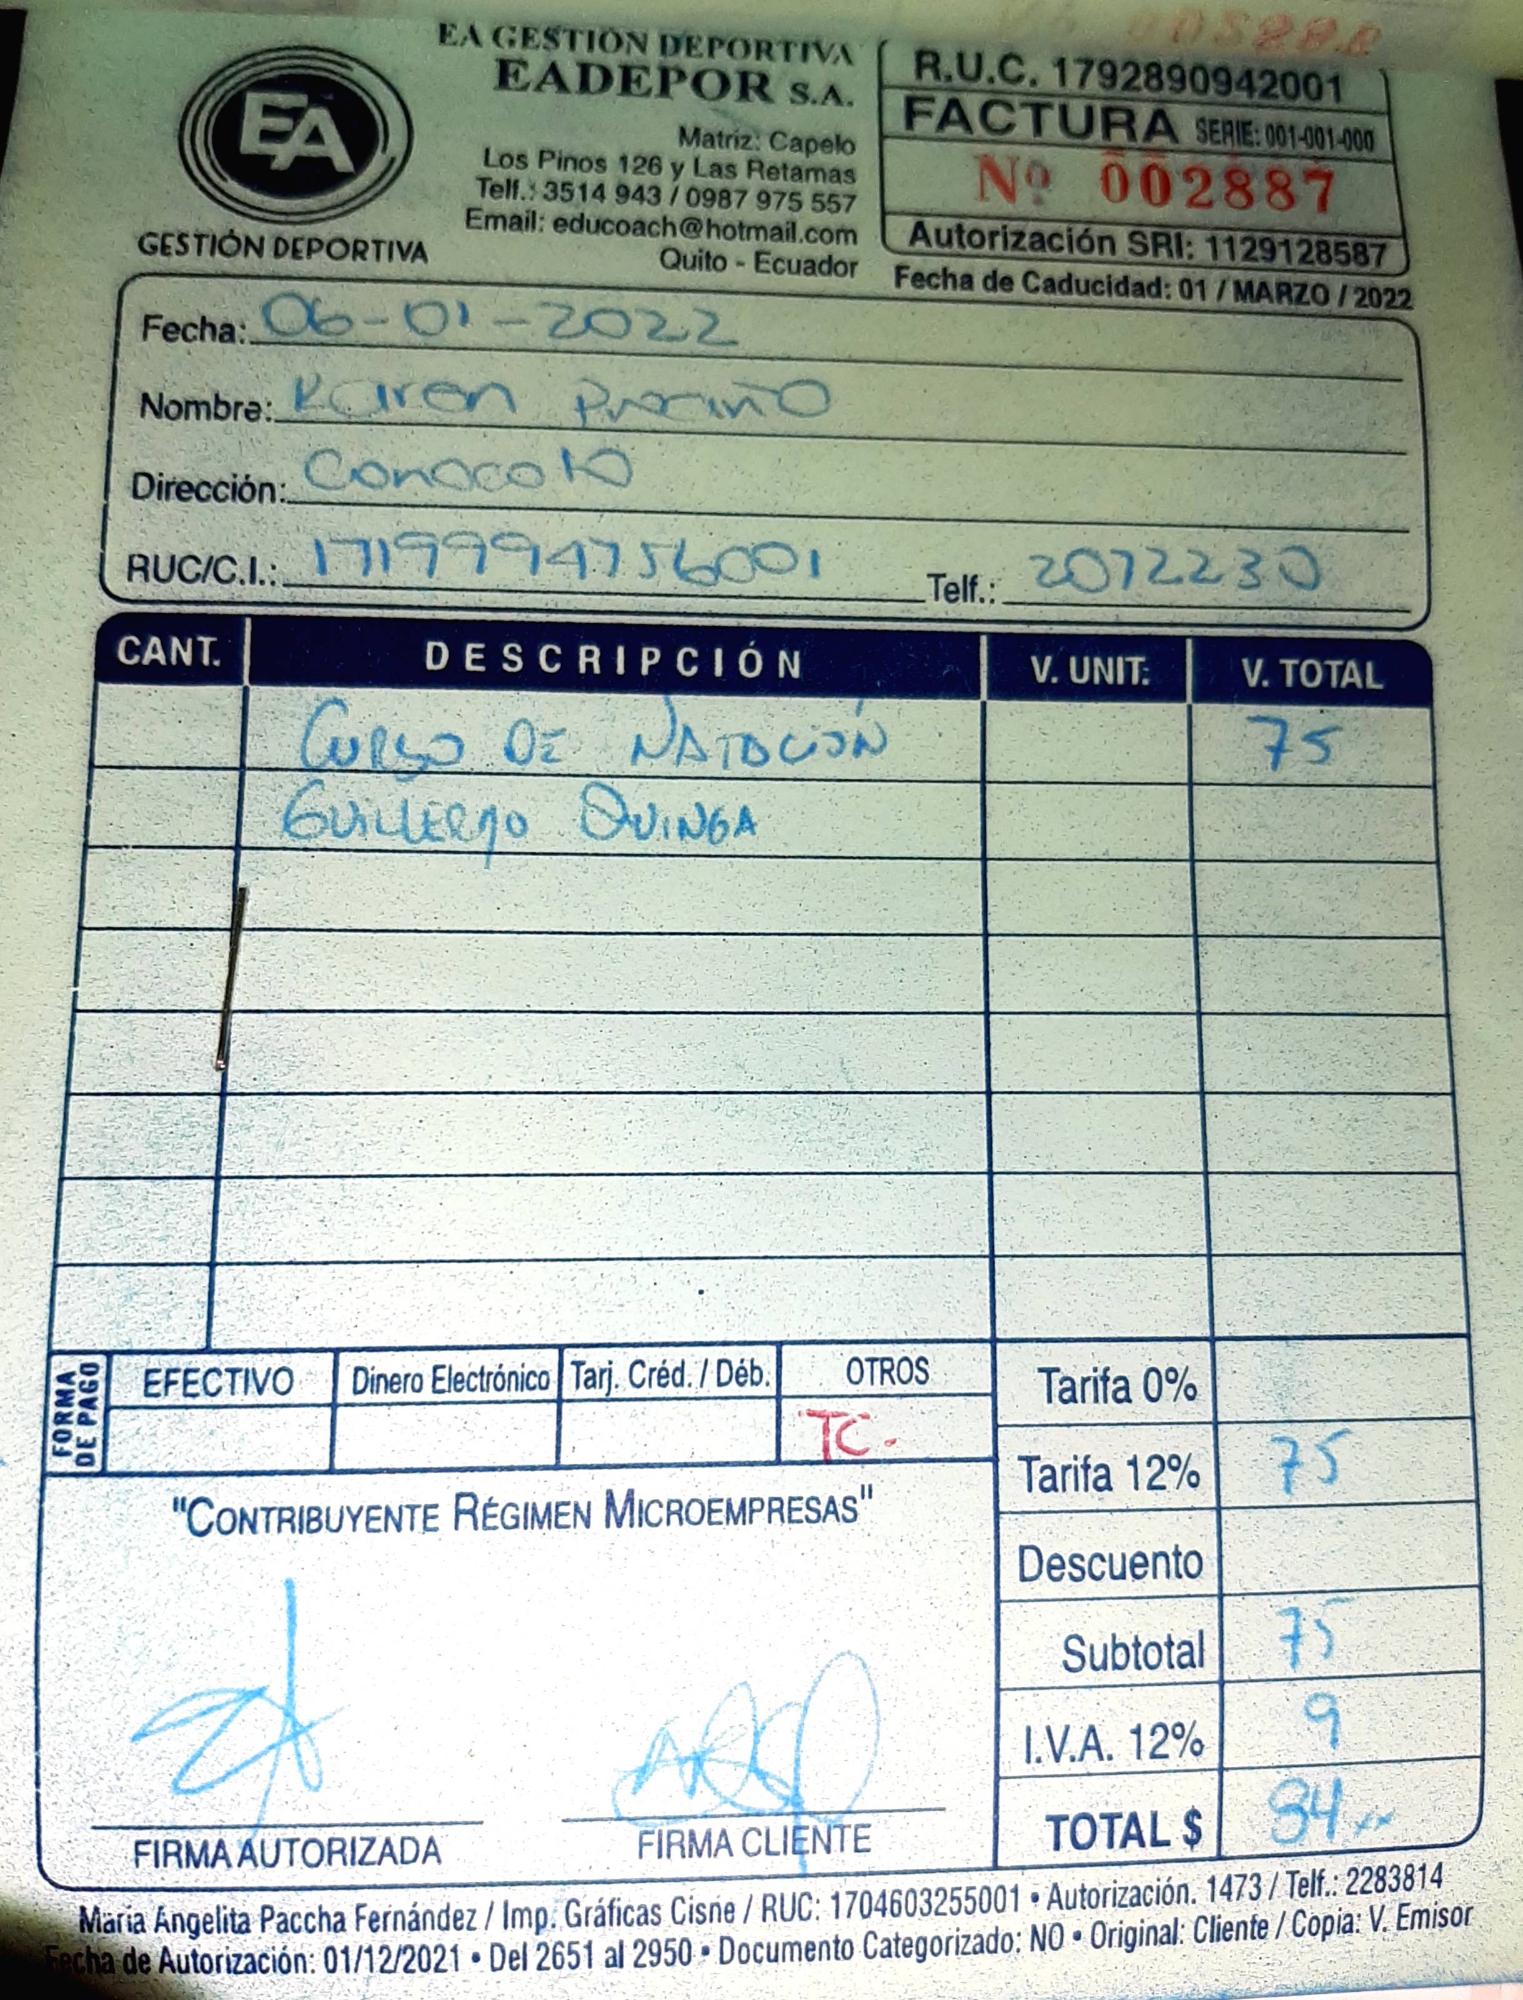 EA GESTIÓN DEPORTIVA
EADEPOR S.A.
Matriz: Capelo
Los Pinos 126 y Las Retamas
Telf.: 3514 943 / 0987 975 557
Email: educoach@hotmail.com
Quito - Ecuador
EA
GESTIÓN DEPORTIVA
R.U.C. 1792890942001
FACTURA SERIE: 001-001-000
Nº 002887
Autorización SRI: 1129128587
Fecha de Caducidad: 01 / MARZO / 2022
Fecha: 06-01-2022
Nombre: Karen
Dirección: Conocoto
RUC/C.I.: 1719994756001 Telf.: 2072230
CANT. DESCRIPCIÓN V. UNIT: V. TOTAL
CURSO DE NATACIÓN 75
GUILLERMO QUINGA
FORMA DE PAGO
EFECTIVO Dinero Electrónico Tarj. Créd. / Déb. OTROS
TC.
Tarifa 0%
Tarifa 12% 75
Descuento
Subtotal 75
I.V.A. 12% 9
TOTAL $ 84
"CONTRIBUYENTE RÉGIMEN MICROEMPRESAS"
FIRMA AUTORIZADA FIRMA CLIENTE
María Angelita Paccha Fernández / Imp. Gráficas Cisne / RUC: 1704603255001 • Autorización. 1473 / Telf.: 2283814
Fecha de Autorización: 01/12/2021 • Del 2651 al 2950 • Documento Categorizado: NO • Original: Cliente / Copia: V. Emisor